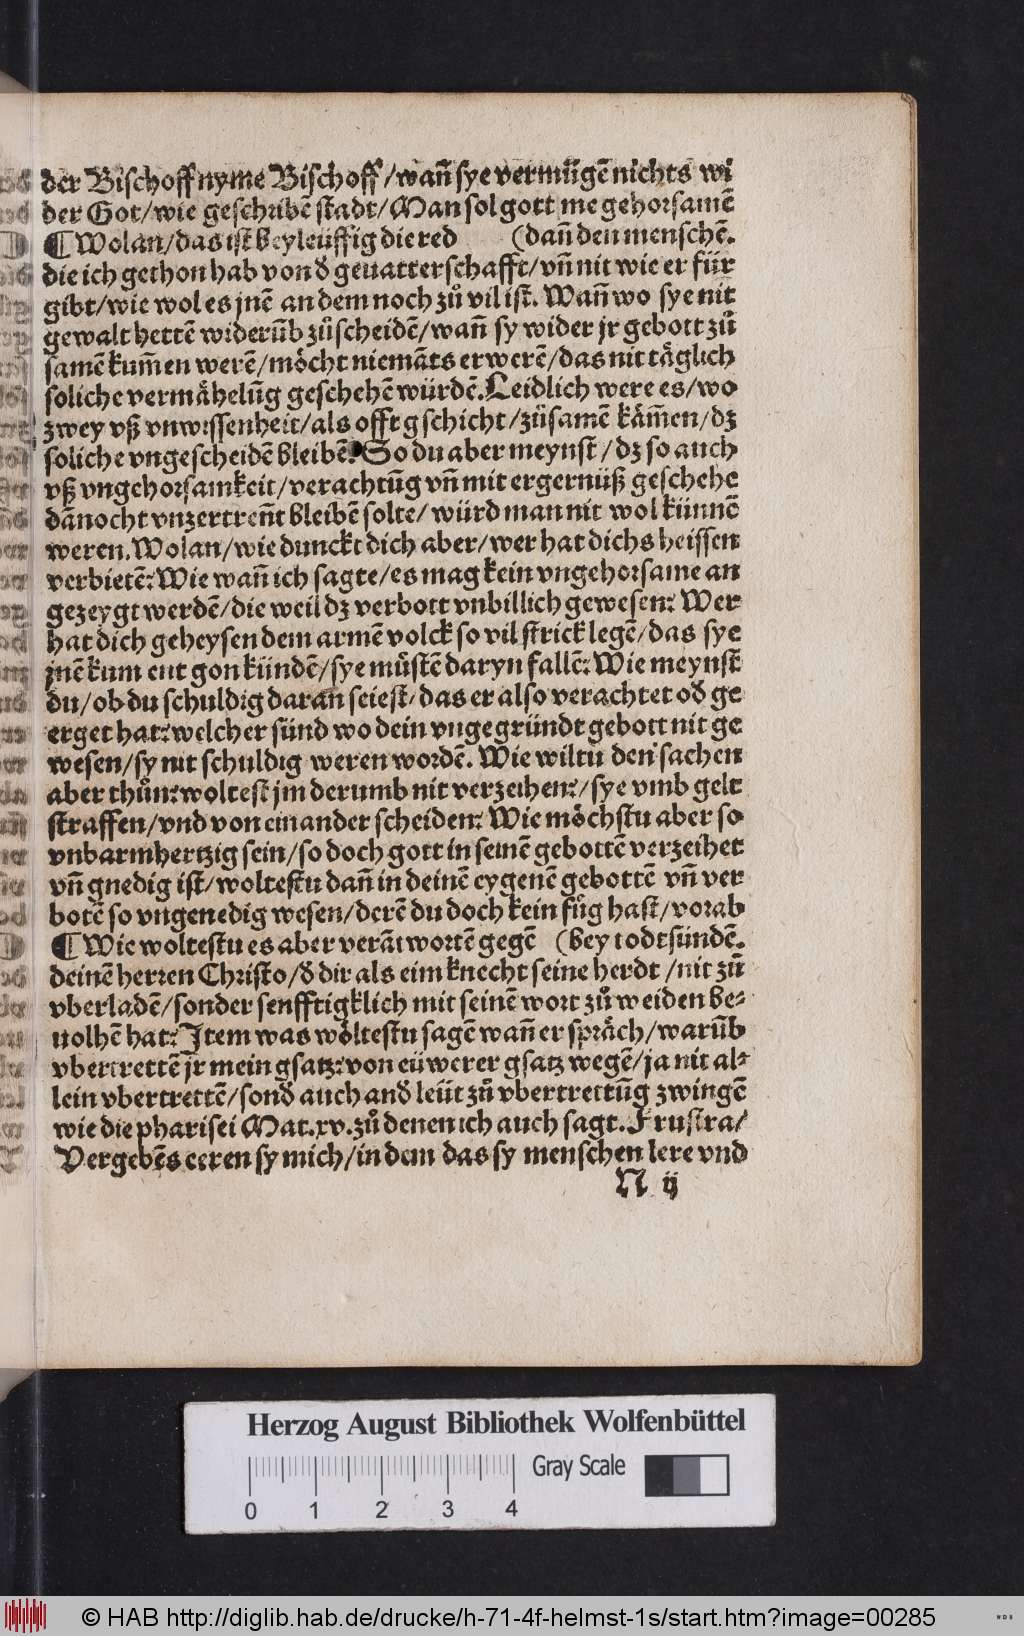 der Bischoff nyme Bischoff/wañ sye vermügẽ nichts wi
der Got/wie geschribẽ stadt/Man sol gott me gehorsamẽ
¶ Wolan/das ist beyleüffig die red (dañ den menschẽ.
die ich gethon hab von đ geuatterschafft/vñ nit wie er für
gibt/wie wol es jnẽ an dem noch zů vil ist. Wañ wo sye nit
gewalt hettẽ widerũb zůscheidẽ/wañ sy wider jr gebott zů
samẽ kum̃en werẽ/möcht niemãts erwerẽ/das nit täglich
soliche vermähelũg geschehẽ würdẽ. Leidlich were es/wo
zwey vß vnwissenheit/als offt gschicht/zůsamẽ käm̃en/dz
soliche vngescheidẽ bleibẽ. So du aber meynst/dz so auch
vß vngehorsamkeit/verachtũg vñ mit ergernüß geschehe
dãnocht vnzertreñt bleibẽ solte/würd man nit wol künnẽ
weren. Wolan/wie dunckt dich aber/wer hat dichs heissen
verbietẽ: Wie wañ ich sagte/es mag kein vngehorsame an
gezeygt werdẽ/die weil dz verbott vnbillich gewesen: Wer
hat dich geheysen dem armẽ volck so vil strick legẽ/das sye
jnẽ kum ent gon kündẽ/sye müstẽ daryn fallẽ: Wie meynst
du/ob du schuldig daran seiest/das er also verachtet ođ ge
erget hat: welcher sünd wo dein vngegründt gebott nit ge
wesen/sy nit schuldig weren wordẽ. Wie wiltu den sachen
aber thůn: woltest jm derumb nit verzeihen:/sye vmb gelt
straffen/vnd von einander scheiden: Wie möchstu aber so
vnbarmhertzig sein/so doch gott in seinẽ gebottẽ verzeihet
vñ gnedig ist/woltestu dañ in deinẽ eygenẽ gebottẽ vñ ver
botẽ so vngenedig wesen/derẽ du doch kein fůg hast/vorab
¶ Wie woltestu es aber verãtwortẽ gegẽ (bey todtsündẽ.
deinẽ herren Christo/đ dir als eim knecht seine herdt/nit zů
vberladẽ/sonder senfftigklich mit seinẽ wort zů weiden be⸗
uolhẽ hat: Item was wöltestu sagẽ wañ er spräch/warũb
vbertrettẽ jr mein gsatz: von eüwerer gsatz wegẽ/ja nit al⸗
lein vbertrettẽ/sonđ auch anđ leüt zů vbertrettũg zwingẽ
wie die pharisei Mat. xv. zů denen ich auch sagt. Frustra/
Vergebẽs eeren sy mich/in dem das sy menschen lere vnd
N ij
Herzog August Bibliothek Wolfenbüttel
Gray Scale
0 1 2 3 4
© HAB http://diglib.hab.de/drucke/h-71-4f-helmst-1s/start.htm?image=00285